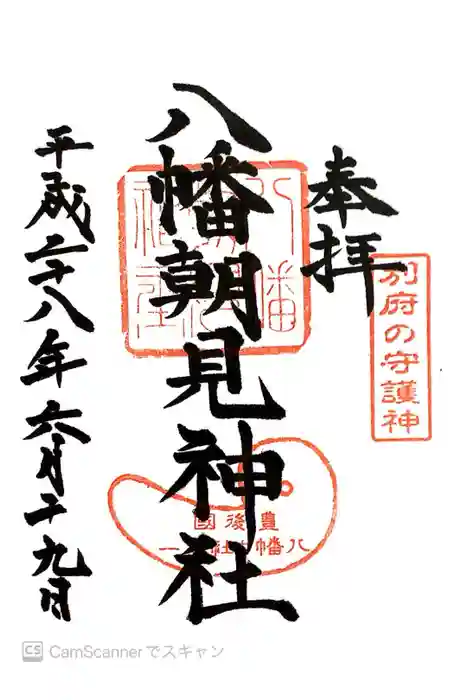 奉拝
別府の守護神
八幡朝見神社
豊後國
平成二十八年六月二十九日
CamScannerでスキャン